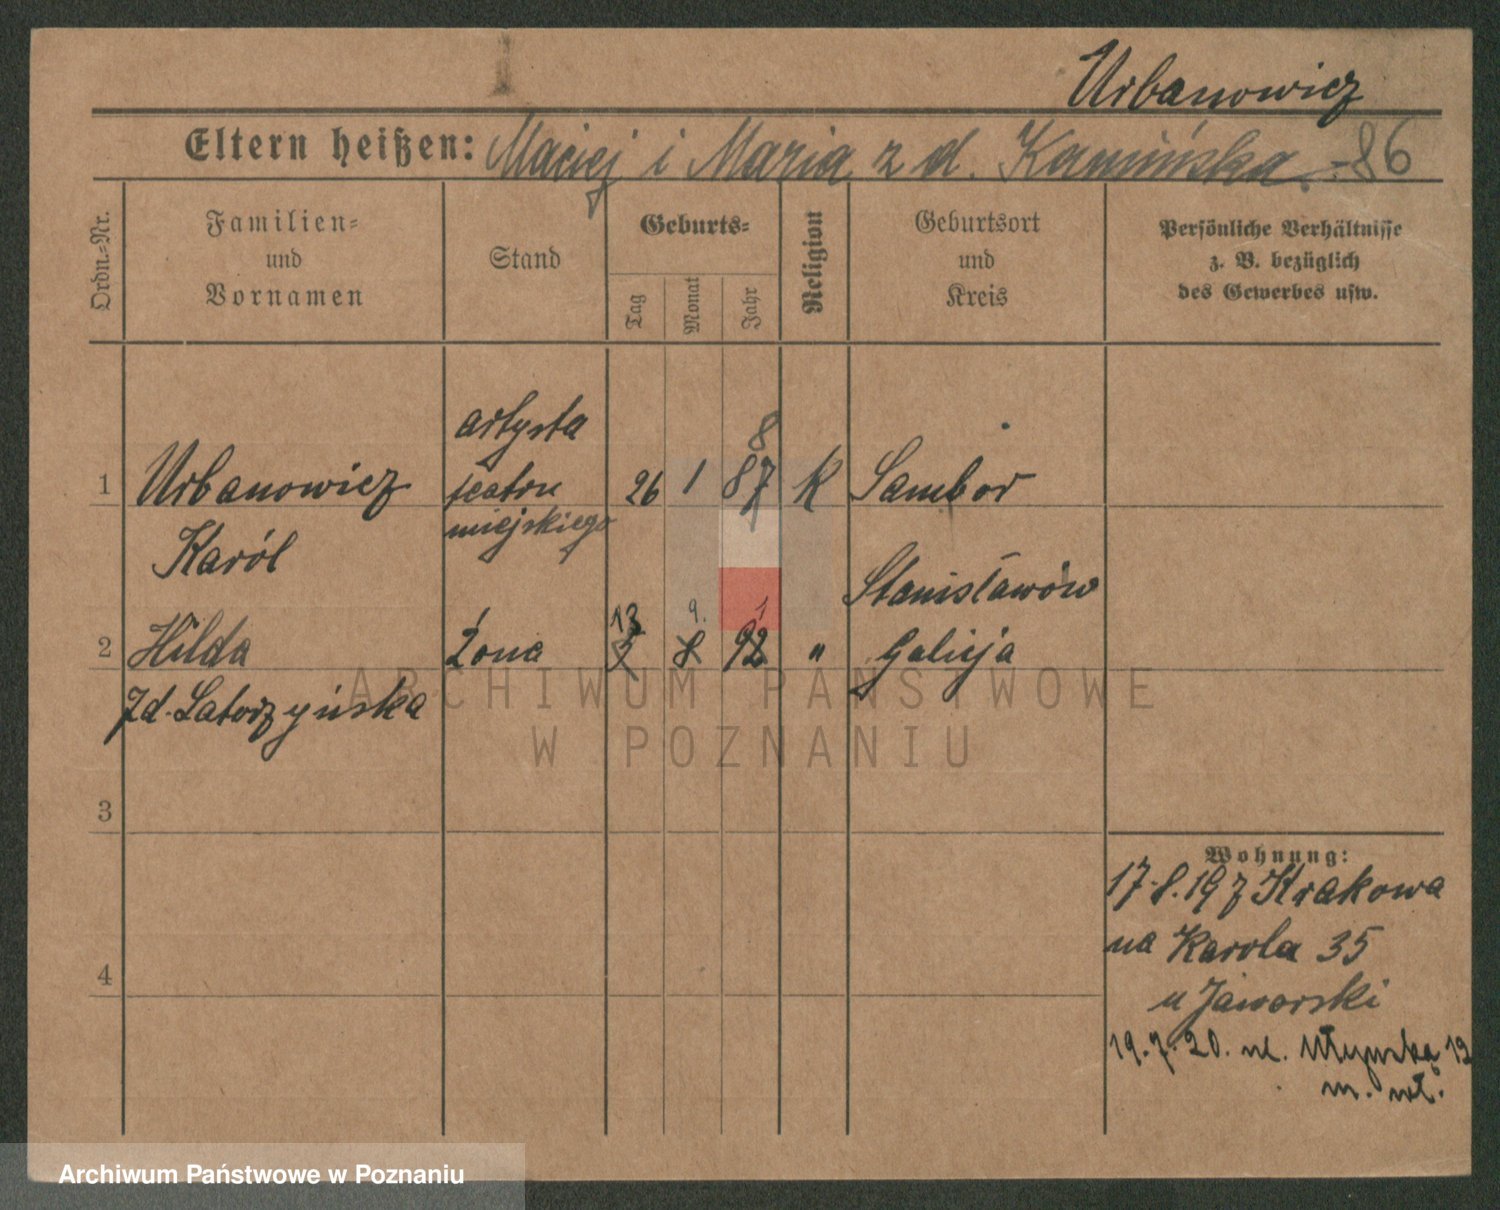 Urbanowicz
Eltern heißen: Maciej i Maria z d. Kamińska. - 86
Ordn.=Nr.
Familien=
und
Vornamen
Stand
Geburts=
Tag
Monat
Jahr
Religion
Geburtsort
und
Kreis
Persönliche Verhältnisse
z. B. bezüglich
des Gewerbes usw.
artysta
8
1 Urbanowicz teatru 26 1 87 K Sambor
miejskiego
Karól
Stanisławów
13 9. 1
2 Hilda żona 8 92 " Galicja
zd. Latorzyńska
ARCHIWUM PAŃSTWOWE
W POZNANIU
3
Wohnung:
17.8.19 z Krakowa
na Karola 35
u Jaworski
4
19.7.20. ul. Młyńska 12
m. wł.
Archiwum Państwowe w Poznaniu